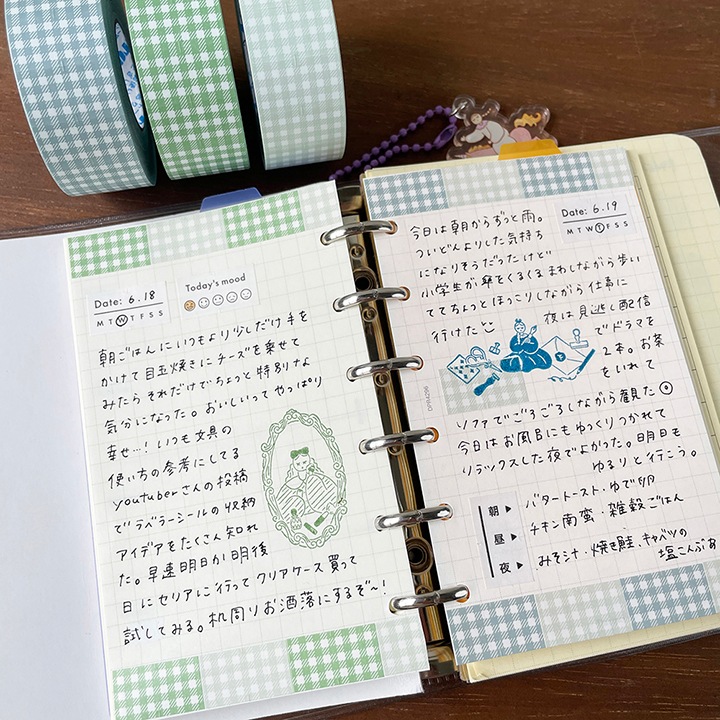 Date: 6.18
M T W T F S S
Today's mood
朝ごはんにいつもより少しだけ手を
かけて目玉焼きにチーズを乗せて
みたらそれだけでちょっと特別な
気分になった。おいしいってやっぱり
幸せ…！いつも文具の
使い方の参考にしてる
youtuberさんの投稿
でラベラーシールの収納
アイデアをたくさん知れ
た。早速明日か明後
日にセリアに行ってクリアケース買って
試してみる。机周りお洒落にするぞ〜！
Date: 6.19
M T W T F S S
今日は朝からずっと雨。
ついどんよりした気持ち
になりそうだったけど
小学生が傘をくるくるまわしながら歩い
ててちょっとほっこりしながら仕事に
行けたよ
夜は見逃し配信
でドラマを
2本。お茶
をいれて
DPR4296
ソファでごろごろしながら観た
今日はお風呂にもゆっくりつかれて
リラックスした夜でよかった。明日も
ゆるりと行こう。
朝▶ バタートースト・ゆで卵
昼▶ チキン南蛮・雑穀ごはん
夜▶ みそ汁・焼き鮭、キャベツの
塩こんぶあ